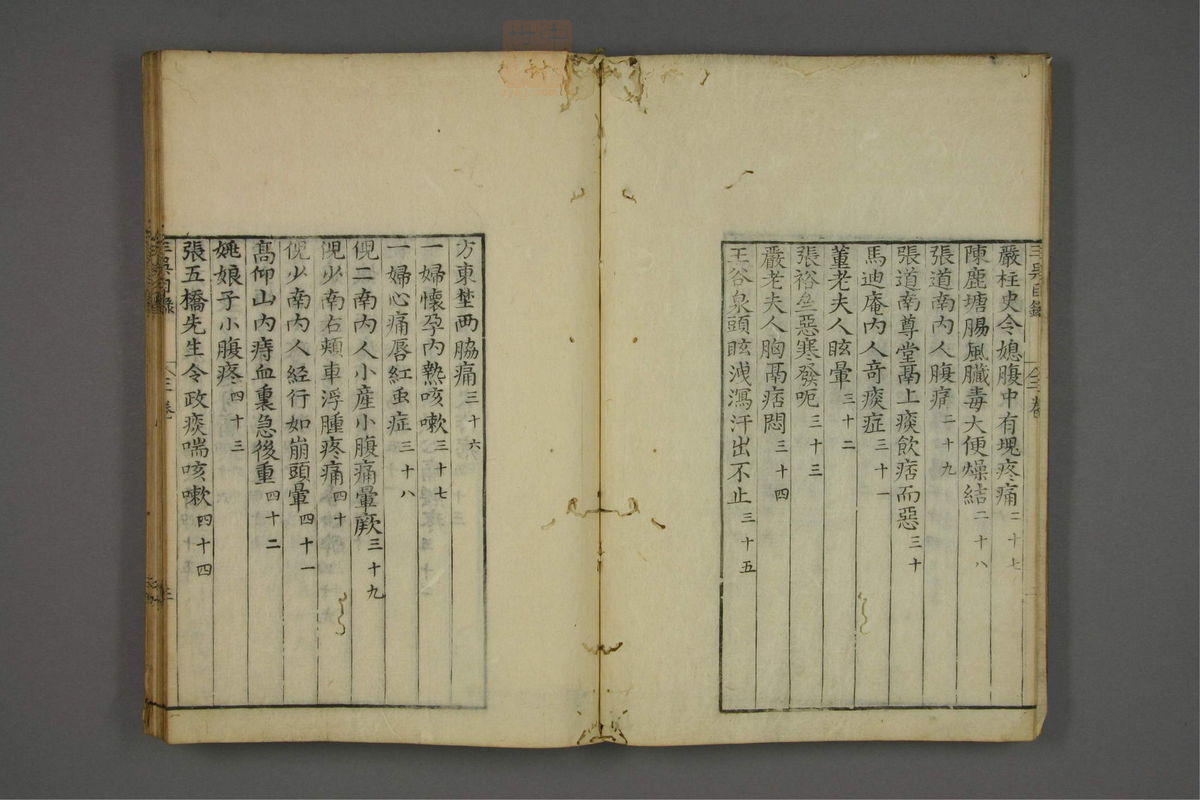 嚴柱史令媳腹中有塊疼痛二十七
陳鹿塘腸風臟毒大便燥結二十八
張道南內人腹痛二十九
張道南尊堂鬲上痰飲痞而惡三十
馬迪庵內人奇痰症三十一
董老夫人眩暈三十二
張裕壘惡寒發呃三十三
嚴老夫人胸鬲痞悶三十四
王谷泉頭眩洩瀉汗出不止三十五
三吳目錄
三卷
方東埜兩脇痛三十六
一婦懷孕內熱咳嗽三十七
一婦心痛唇紅虫症三十八
倪二南內人小產小腹痛暈厥三十九
倪少南右頰車浮腫疼痛四十
倪少南內人經行如崩頭暈四十一
高仰山內痔血裏急後重四十二
姚娘子小腹疼四十三
張五橋先生令政痰喘咳嗽四十四
三吳目錄
三卷